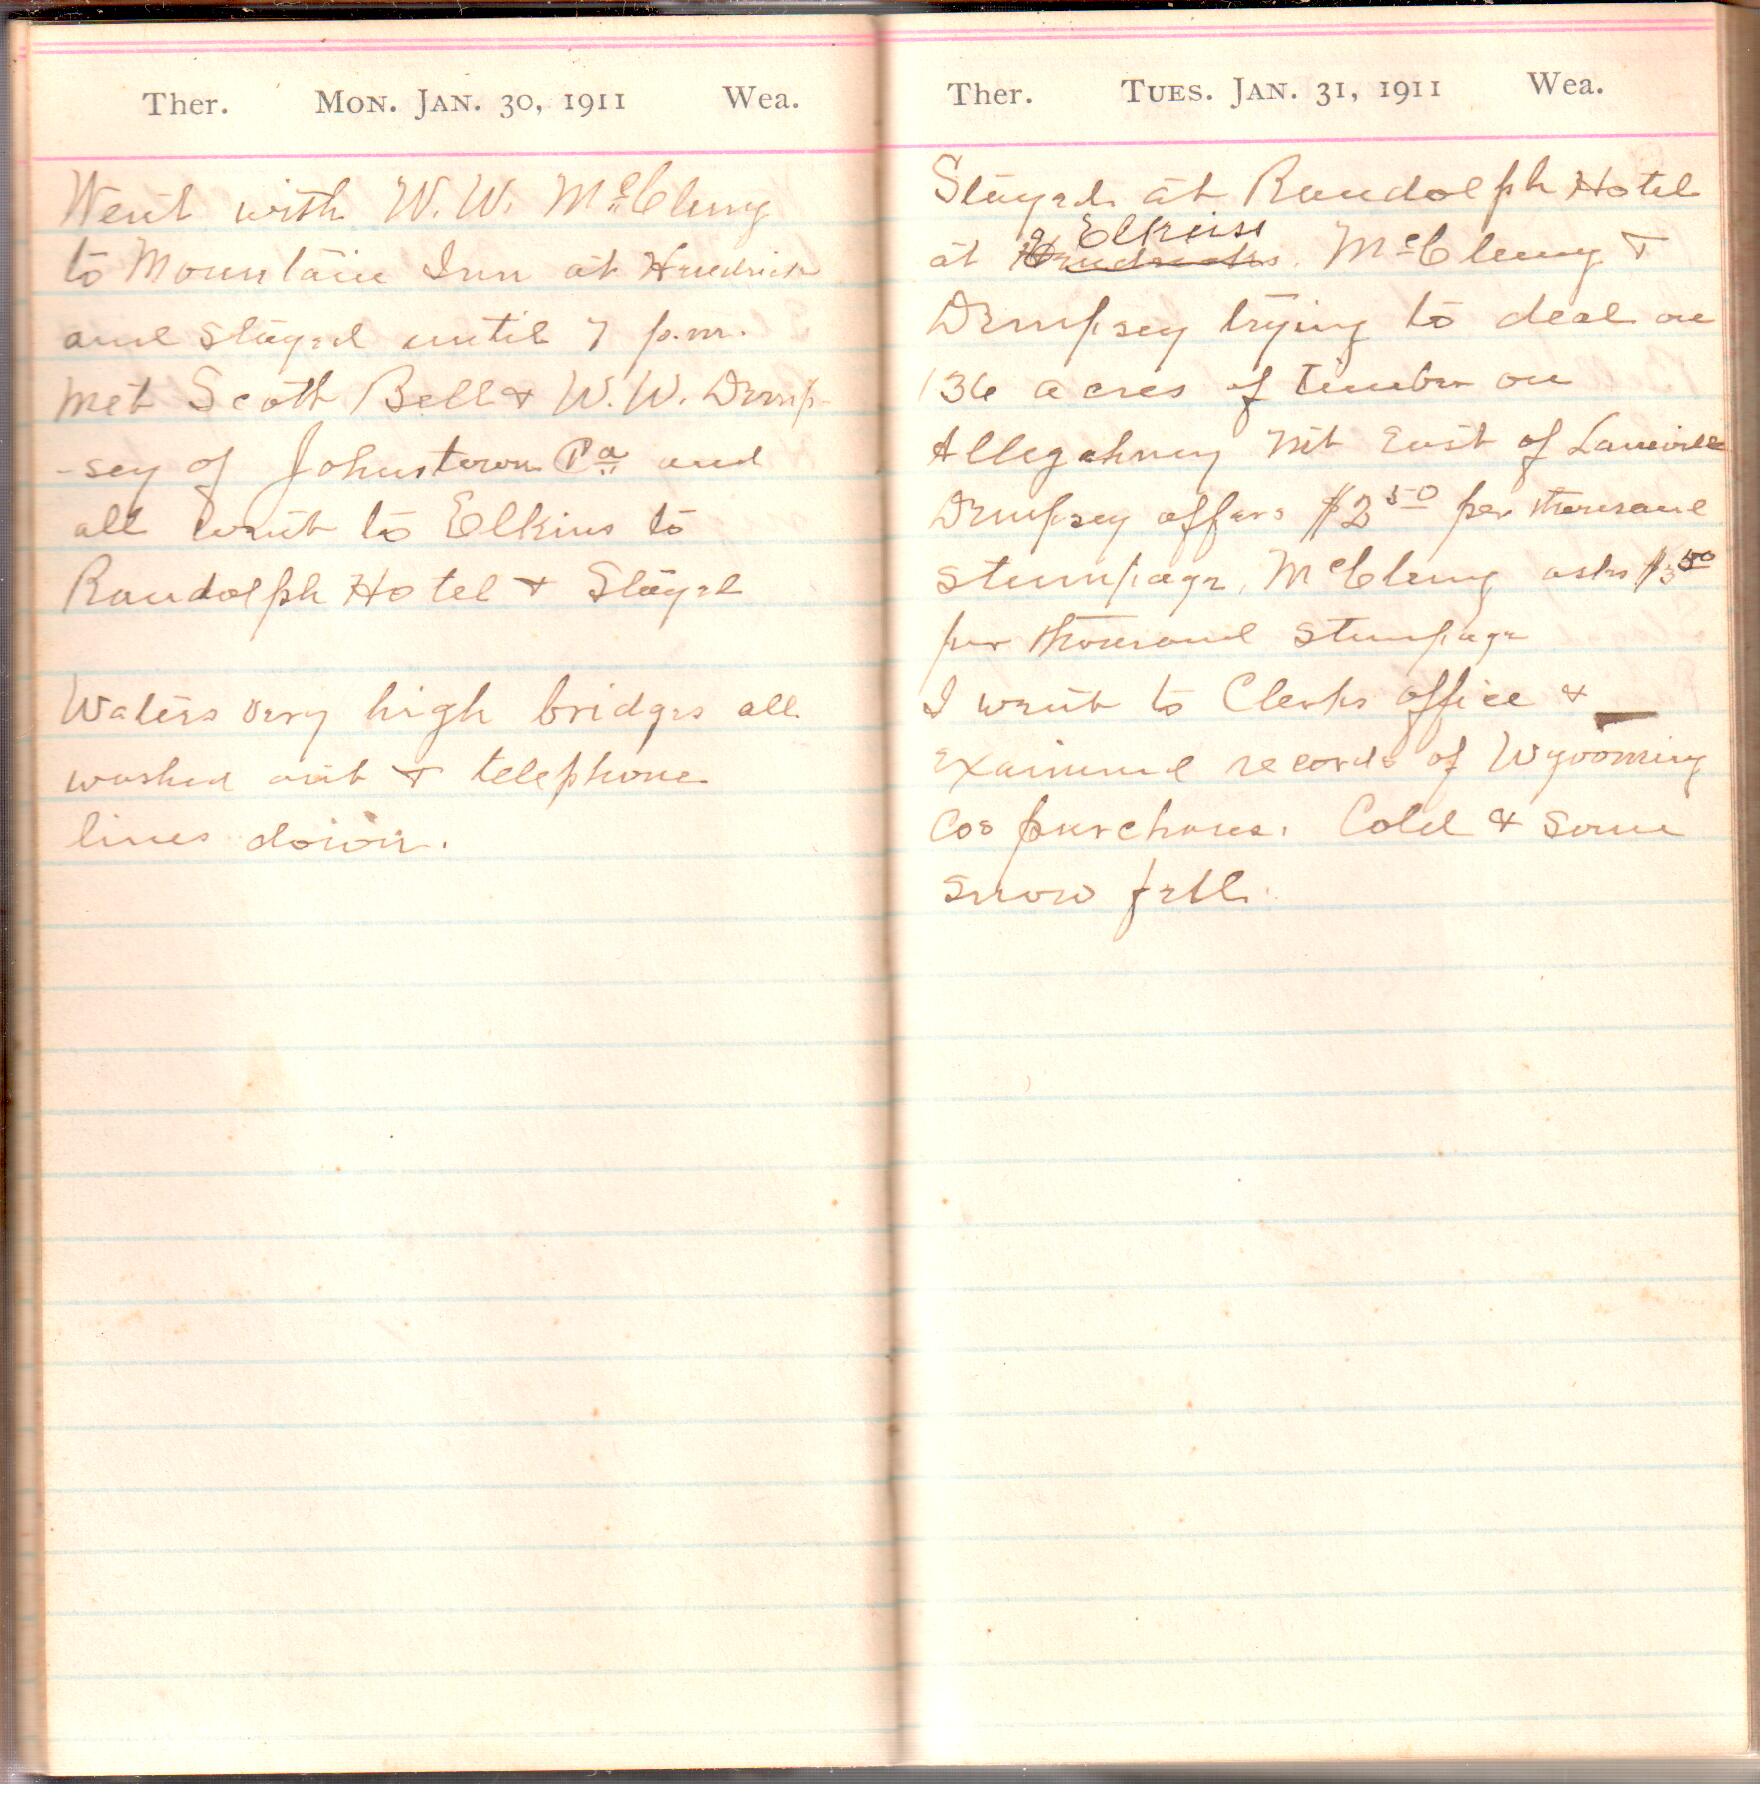 Ther. Mon. Jan. 30, 1911 Wea.
Went with W. W. McClung
to Mountain Inn at Hendricks
and stayed until 7 p.m.
met Scott Bell & W. W. Demp-
-sey of Johnstown Pa and
all went to Elkins to
Randolph Hotel & Stayed
Waters very high bridges all
washed out & telephone
lines down.
Ther. Tues. Jan. 31, 1911 Wea.
Stayed at Randolph Hotel
Elkins
at Hendricks. McClung &
Dempsey trying to deal on
136 acres of timber on
Allegahney Mt East of Laneville
Dempsey offers $2 50 per thousand
stumpage, McClung asks $3 50
per thousand stumpage
I went to Clerks office &
examined records of Wyooming
Cos purchases. Cold & some
snow fell.